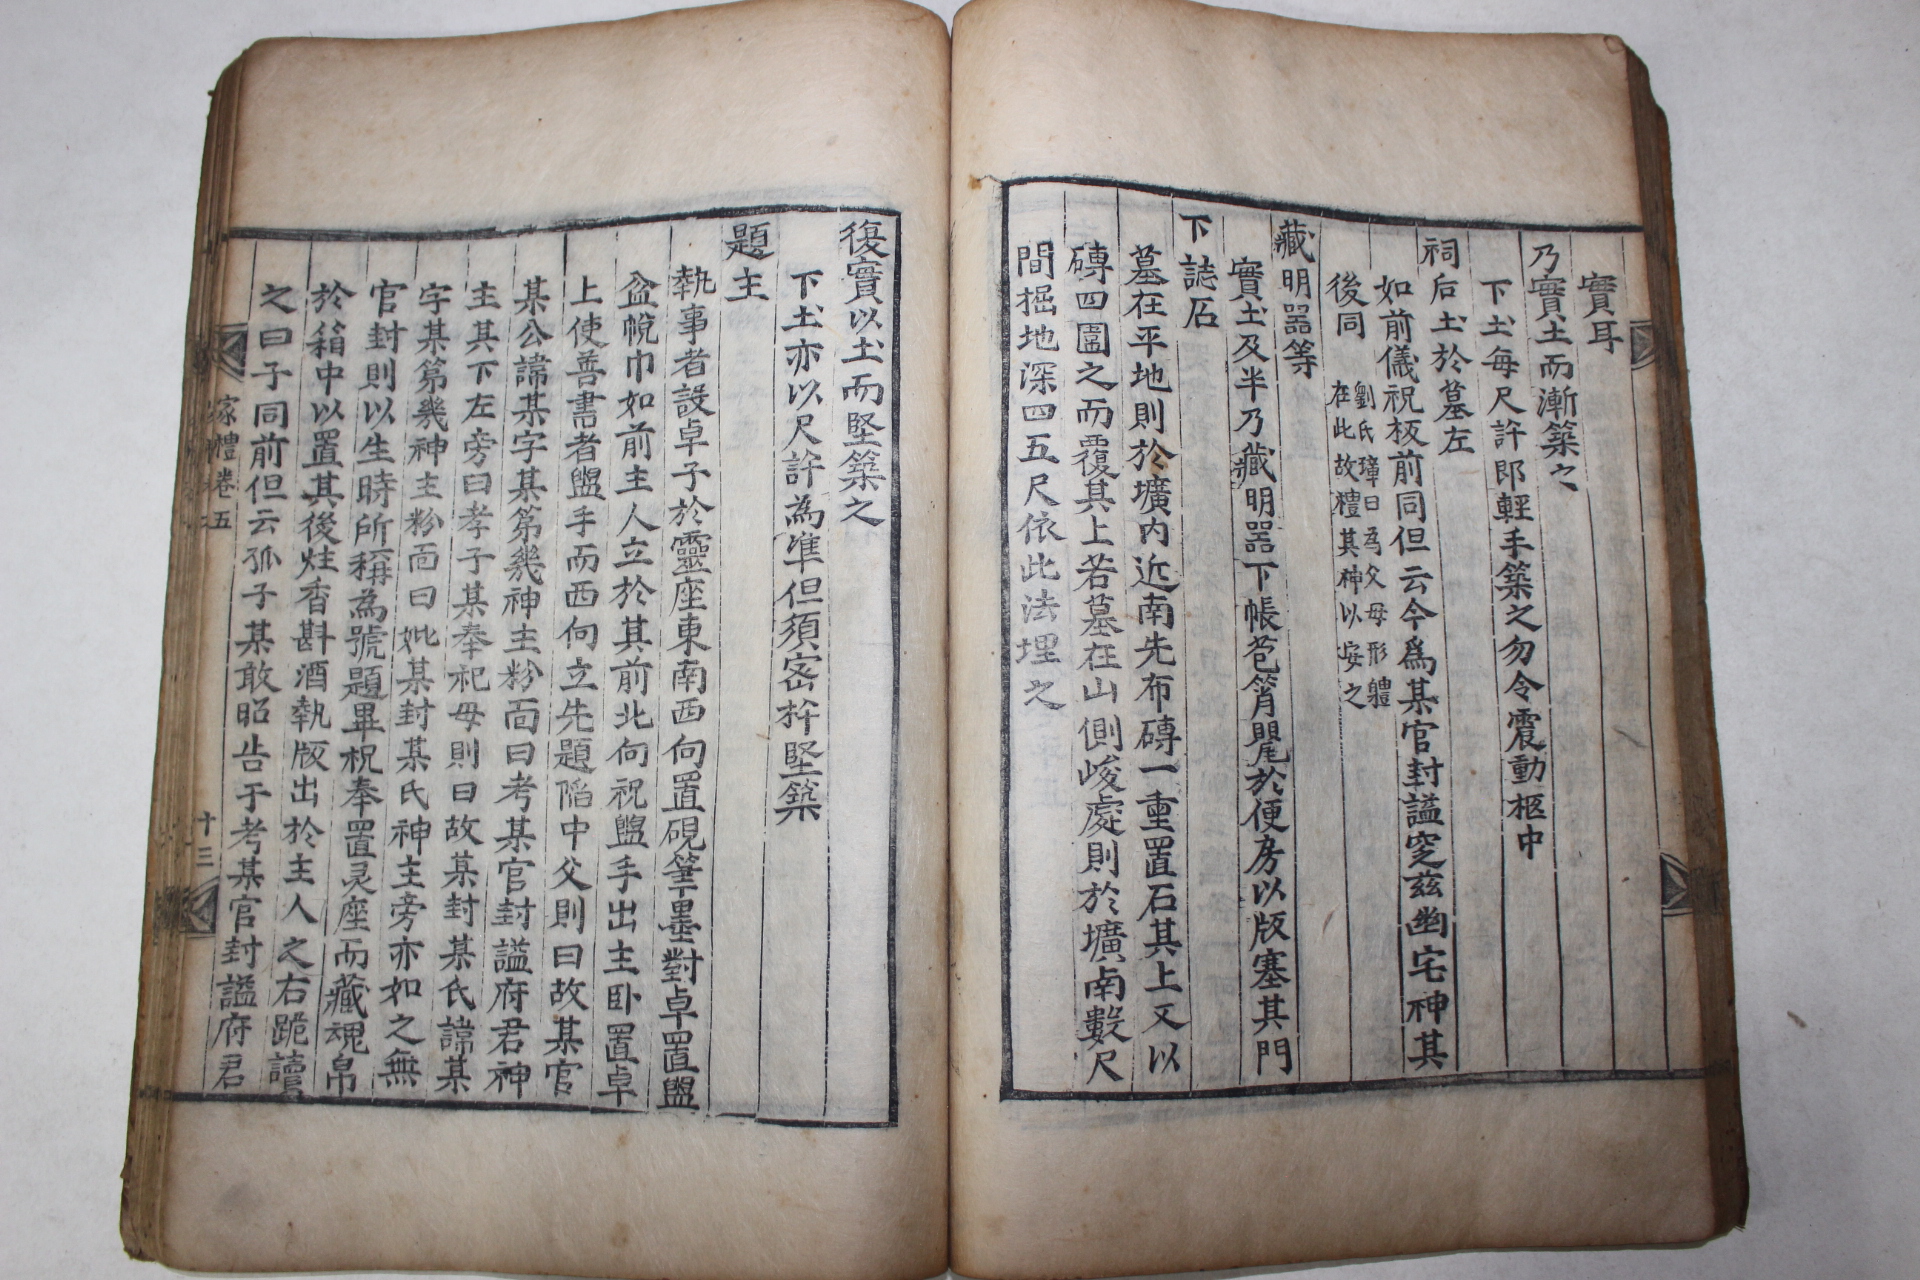 實耳
乃實土而漸築之
下土每尺許即輕手築之勿令震動柩中
祠后土於墓左
如前儀祝板前同但云今爲某官封謚窆兹幽宅神其
後同
劉氏璋曰為父母形軆
在此故禮其神以安之
藏明器等
實土及半乃藏明器下帳苞筲甖於便房以版塞其門
下誌石
墓在平地則於壙内近南先布磚一重置石其上又以
磚四圍之而覆其上若墓在山側峻處則於壙南數尺
間掘地深四五尺依此法埋之
復實以土而堅築之
下土亦以尺許為準但須密杵堅築
題主
執事者設卓子於靈座東南西向置硯筆墨對卓置盥
盆帨巾如前主人立於其前北向祝盥手出主卧置卓
上使善書者盥手而西向立先題陷中父則曰故某官
某公諱某字某第幾神主粉面曰考某官封謚府君神
主其下左旁曰孝子某奉祀母則曰故某封某氏諱某
字某第幾神主粉面曰妣某封某氏神主旁亦如之無
官封則以生時所稱為號題畢祝奉置灵座而藏魂帛
於箱中以置其後炷香斟酒執版出於主人之右跪讀
之曰子同前但云孤子某敢昭告于考某官封謚府君
家禮卷五
十三